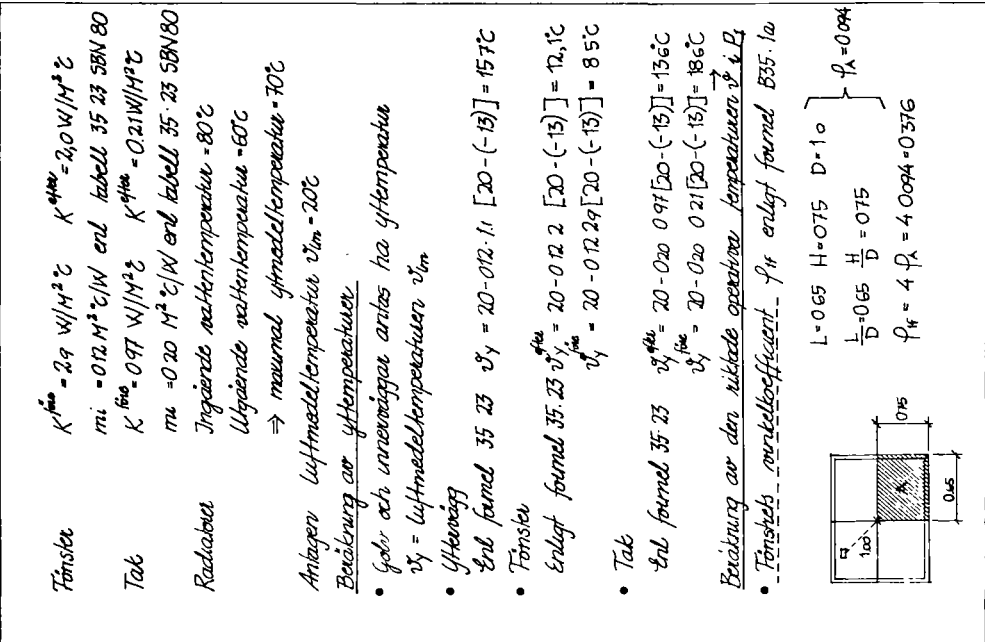 Fönster K^före = 2,9 W/M² °C K^efter = 2,0 W/M² °C
mi = 0 12 M² °C/W enl tabell 35 23 SBN 80
Tak K^före = 0 97 W/M² °C K^efter = 0.21 W/M² °C
mi = 0 20 M² °C/W enl tabell 35 23 SBN 80
Radiatorer Ingående vattentemperatur = 80°C
Utgående vattentemperatur = 60°C
⇒ maximal ytmedeltemperatur = 70°C
Antagen luftmedeltemperatur ϑlm = 20°C
Beräkning av yttemperaturer
• Golv och innerväggar antas ha yttemperatur
ϑy = luftmedeltemperaturen ϑlm
• Yttervägg
Enl formel 35 23 ϑy = 20 - 0 12 · 1.1 [20 - (-13)] = 15 7°C
• Fönster
Enligt formel 35. 23 ϑy^efter = 20 - 0 12 2 [20 - (-13)] = 12,1°C
ϑy^före = 20 - 0 12 2 9 [20 - (-13)] = 8 5°C
• Tak
Enl formel 35. 23 ϑy^före = 20 - 0 20 0 97 [20 - (-13)] = 13 6°C
ϑy^efter = 20 - 0 20 0 21 [20 - (-13)] = 18 6°C
Beräkning av den riktade operativa temperaturen ϑ i P1
• Fönstrets vinkelkoefficient φ1f enligt formel B35. 1a
L = 0 65 H = 0 75 D = 1 0
L/D = 0 65 H/D = 0 75 φA = 0 094
φ1f = 4 φA = 4 0 094 = 0 376
1.00
A
0.75
0.65